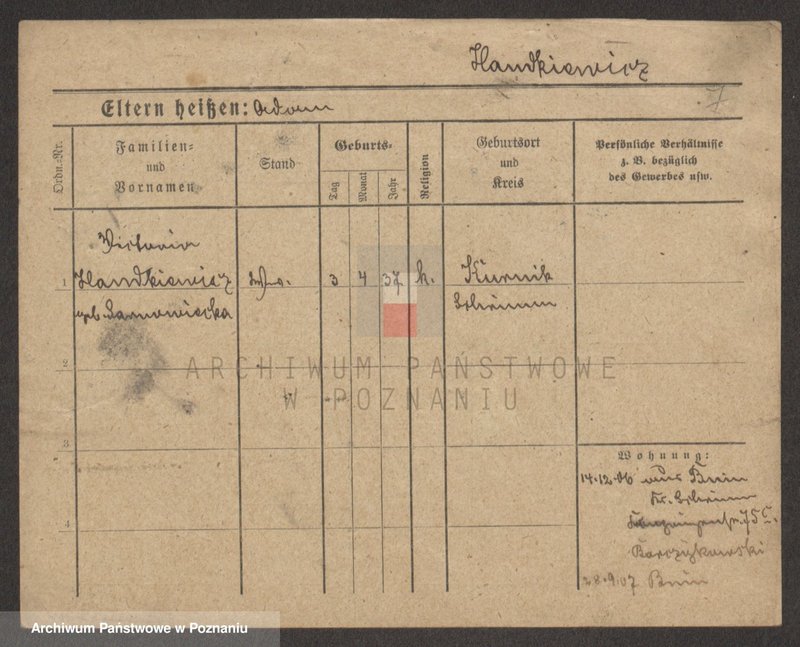 Handkiewicz
7
Eltern heißen: Adam
Ordn.-Nr.
Familien-
und
Vornamen
Stand
Geburts-
Tag
Monat
Jahr
Religion
Geburtsort
und
Kreis
Persönliche Verhältnisse
z. B. bezüglich
des Gewerbes usw.
Victoria
1 Handkiewicz Ww. 3 4 37 k. Kurnik
geb. Darnowiecka Schrimm
2
3
4
ARCHIWUM PAŃSTWOWE
W POZNANIU
Wohnung:
14.12.06 aus Bnin
Kr. Schrimm
75 c.
Barczykowski
28.9.07 Bnin
Archiwum Państwowe w Poznaniu